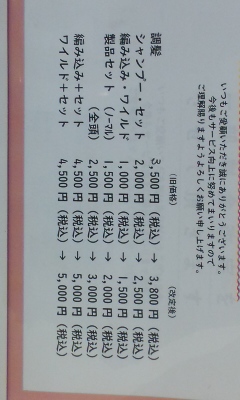 いつもご愛顧いただき誠にありがとうございます。
今後もサービス向上に努めてまいりますので
ご理解賜りますようよろしくお願い申し上げます。
(旧価格) (改定後)
調髪 3,500円(税込) → 3,800円(税込)
シャンプー・セット 2,000円(税込) → 2,500円(税込)
編み込み・ワイルド 1,000円(税込) → 1,500円(税込)
製品セット (ノーマル) 1,500円(税込) → 2,000円(税込)
(全頭) 2,500円(税込) → 3,000円(税込)
編み込み+セット 4,500円(税込) → 5,000円(税込)
ワイルド+セット 4,500円(税込) → 5,000円(税込)